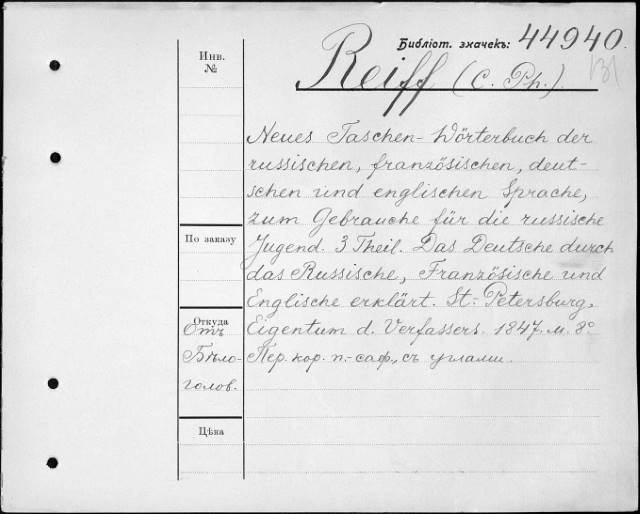 Библіот. значекъ: 44940.
131
Reiff (C. Ph.)
Инв.
№
Neues Taschen-Wörterbuch der
russischen, französischen, deut-
schen und englischen Sprache,
zum Gebrauche für die russische
Jugend. 3 Theil. Das Deutsche durch
das Russische, Französische und
Englische erklärt. St.-Petersburg,
Eigentum d. Verfassers. 1847. м. 8º
Пер. кор. п.-саф., съ углами.
По заказу
Откуда
Отъ
Бѣло-
голов.
Цѣна